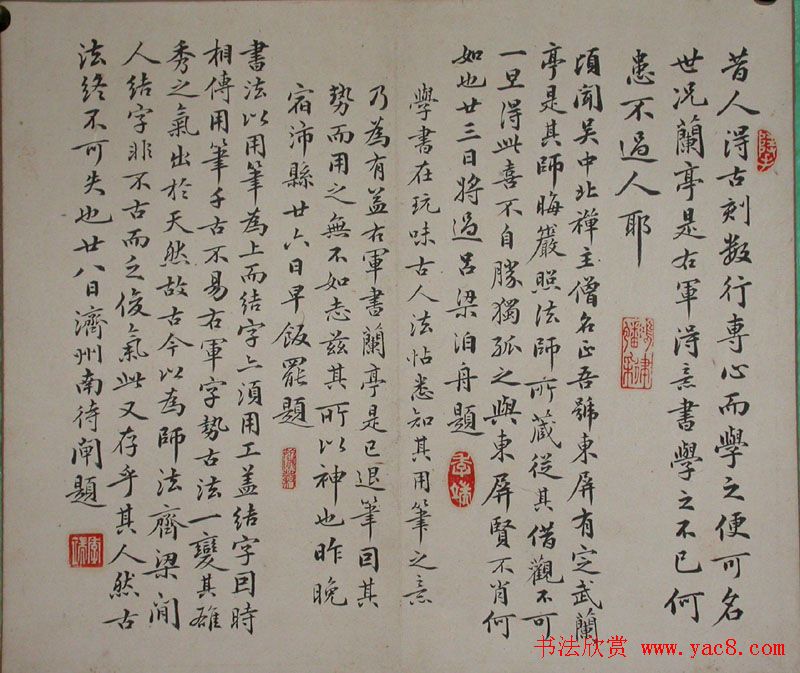 昔人得古刻數行專心而學之便可名
世况蘭亭是右軍得意書學之不已何
患不過人耶
頃聞吴中北禪主僧名正吾號東屏有定武蘭
亭是其師晦巖照法師所藏從其借觀不可
一旦得此喜不自勝獨孤之與東屏賢不肖何
如也廿三日將過吕梁泊舟題
學書在玩味古人法帖悉知其用筆之意
乃為有益右軍書蘭亭是已退筆因其
勢而用之無不如志兹其所以神也昨晚
宿沛縣廿六日早飯罷題
書法以用筆為上而結字亦須用工盖結字因時
相傳用筆千古不易右軍字勢古法一變其雄
秀之氣出於天然故古今以為師法齊梁間
人結字非不古而乏俊氣此又存乎其人然古
法終不可失也廿八日濟州南待閘題
书法欣赏 www.yac8.com